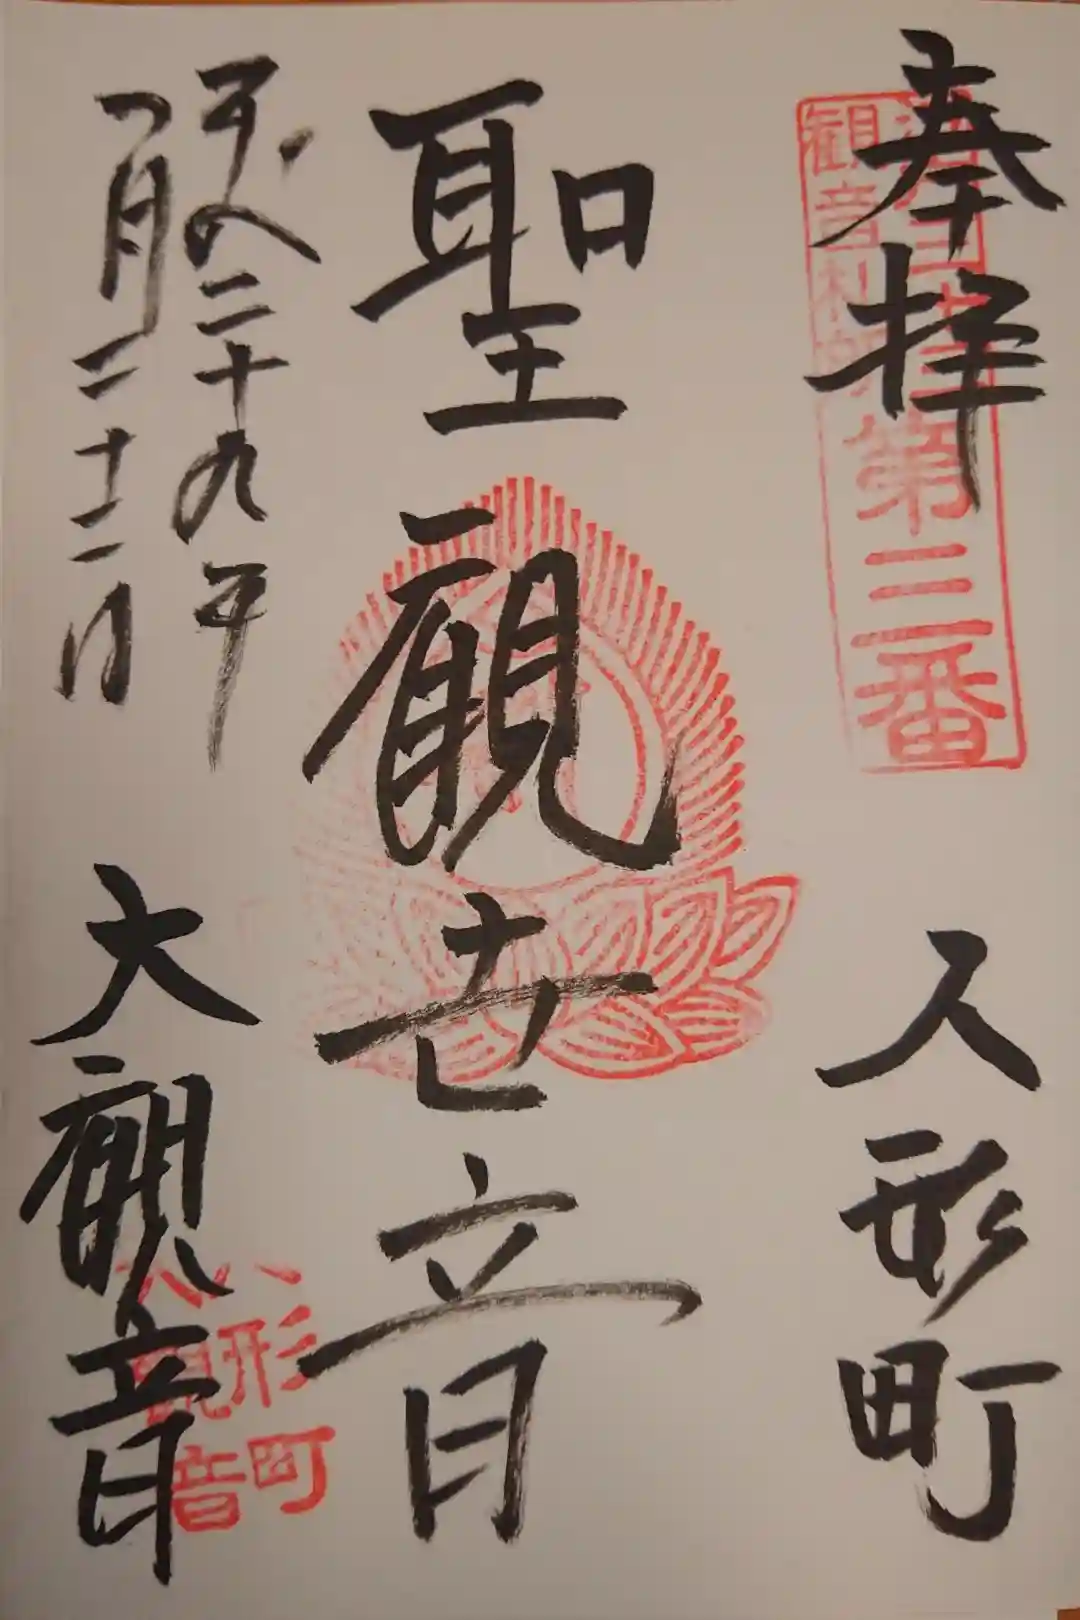 奉拝 人形町
第三番
観音札所
聖観世音
平成二十九年
一月二十二日
大観音
人形町
大観音